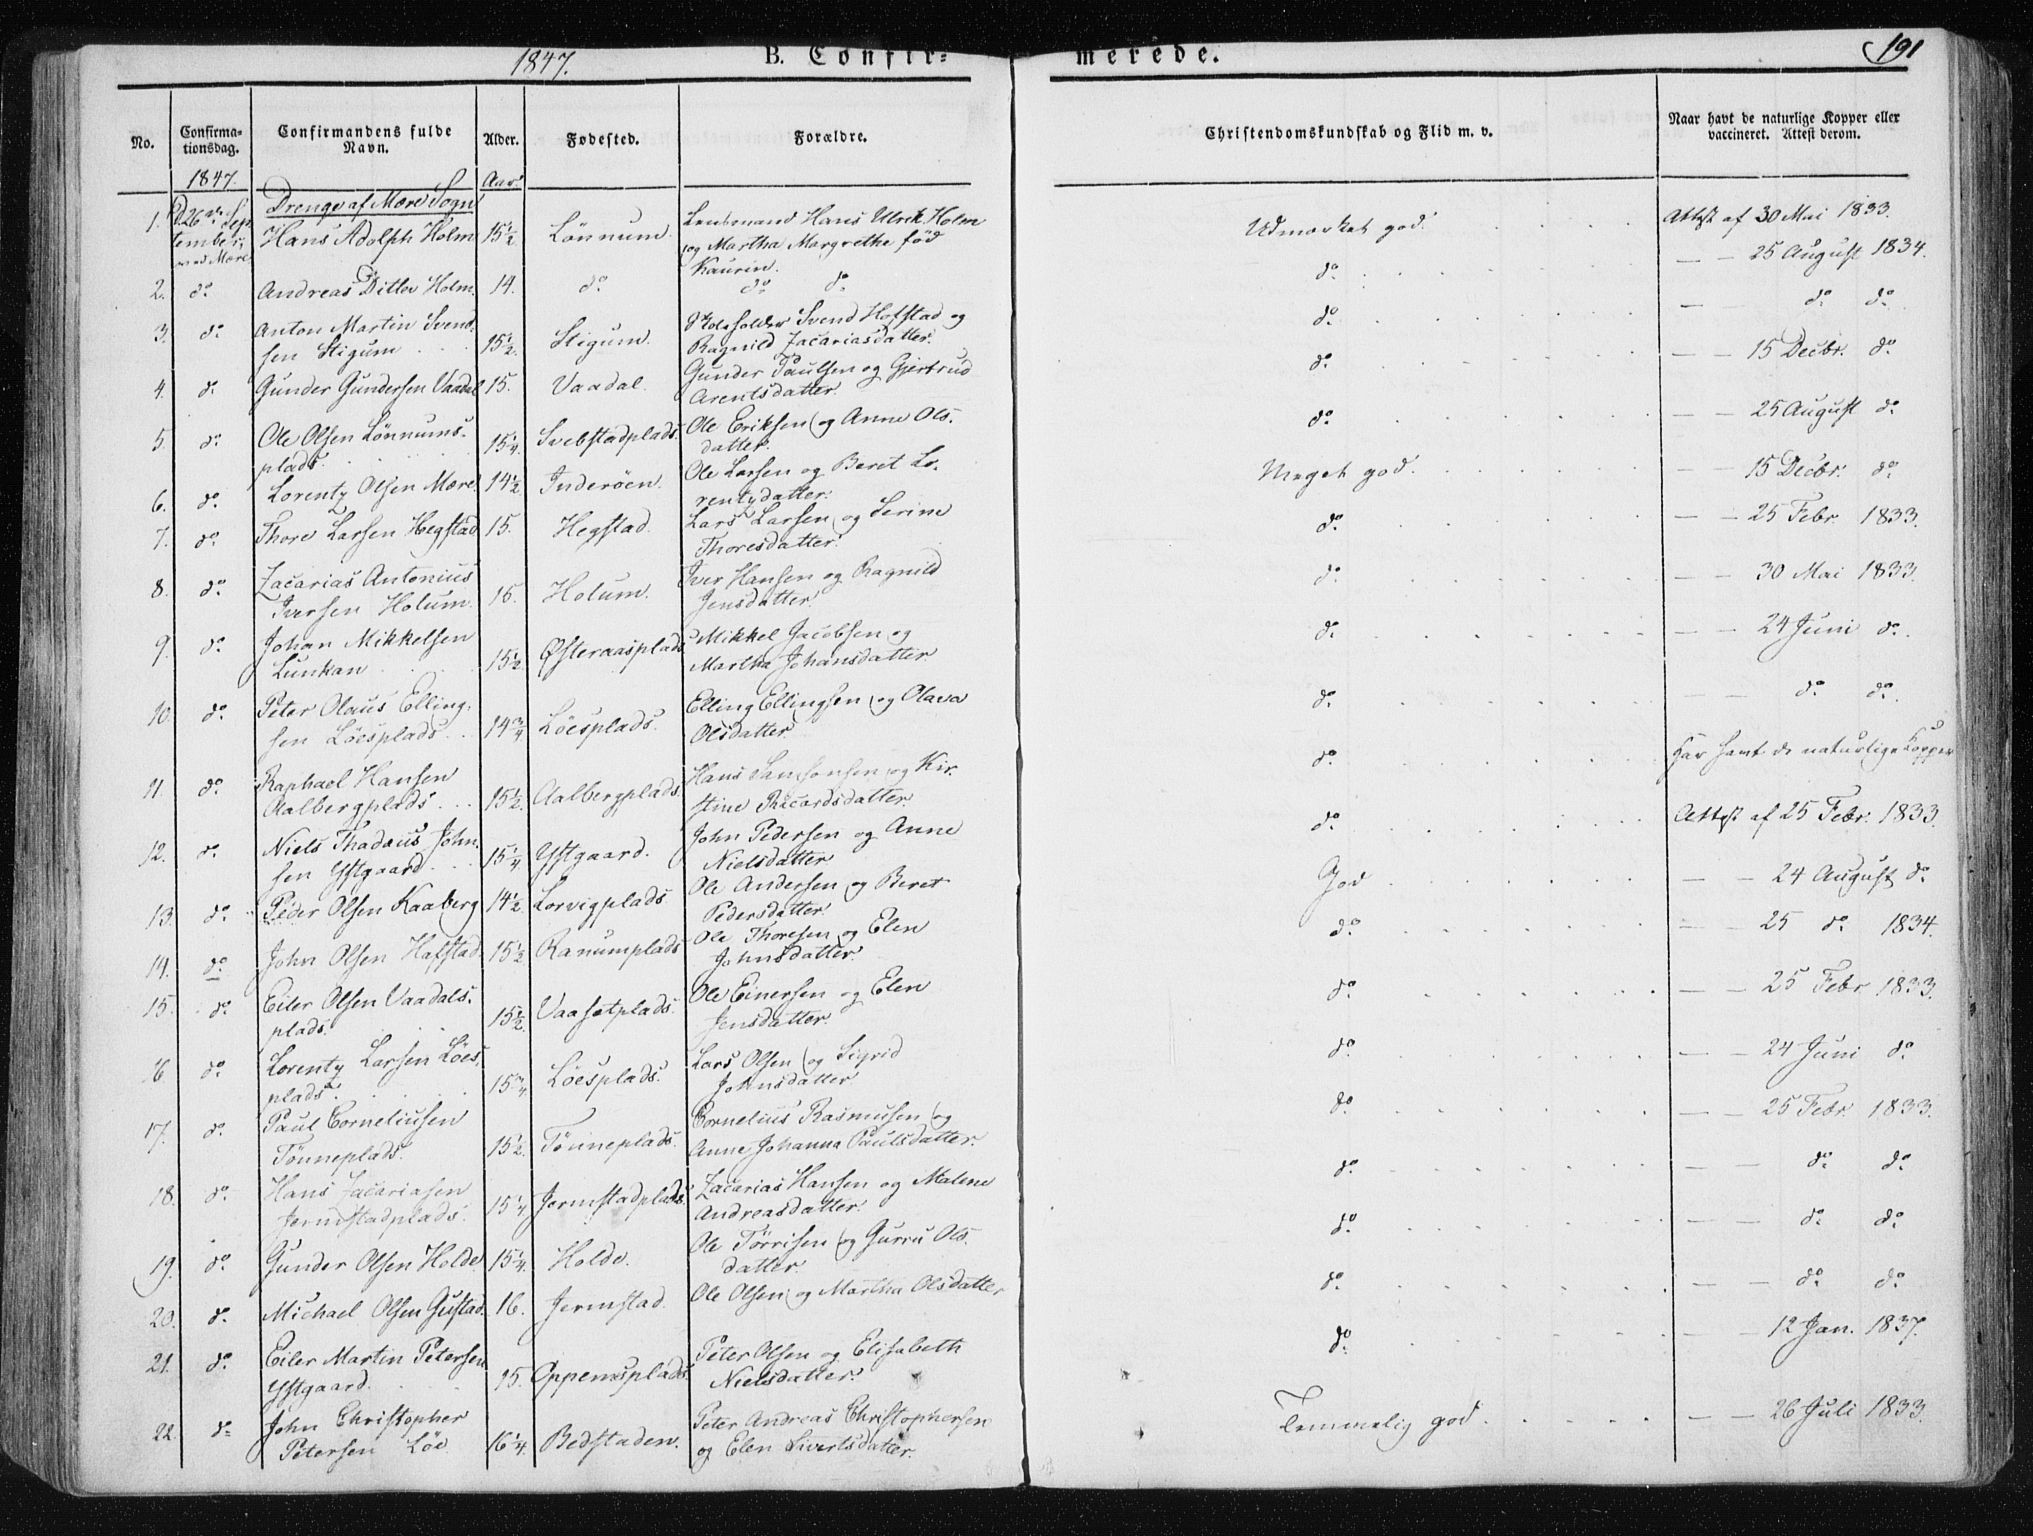 1847. B. Confir= merede. 191
No. Confirma-tionsdag. Confirmandens fulde Navn. Alder. Fødested. Forældre. Christendomskundskab og Flid m. v. Naar havt de naturlige Kopper eller vaccineret. Attest derom.
1847. Aar.
Drenge af Mære Sogn
1. D. 26de September, ved Mære Hans Adolph Holm 15½ Lönnum. Lensmand Hans Ulrik Holm og Martha Margrethe fød Kaurin. Udmærket god. Attest af 30 Mai 1833.
2. do Andreas Ditlev Holm. 14. do do do do — — 25 August 1834.
3. do Anton Martin Svend-sen Stigum 15½. Stigum. Skoleholder Svend Hofstad og Ragnild Zacariasdatter. do — do do
4. do Gunder Gundersen Vaadal 15. Vaadal. Gunder Paulsen og Gjertrud Arentsdatter. do — — 15 Decbr. do
5. do Ole Olsen Lönnums-plads. 15¼. Svebstadplads. Ole Eriksen og Anne Ols-datter. do — — 25 August do
6. do Lorentz Olsen Mære. 14½ Inderöen. Ole Larsen og Beret Lo-rentzdatter. Meget god. — — 15 Decbr. do
7. do Thore Larsen Hegstad 15. Hegstad. Lars Larsen og Serine Thoresdatter. do — — 25 Febr. 1833.
8. do Zacarias Antonius Iversen Holum. 16. Holum. Iver Hansen og Ragnild Jensdatter. do — — 30 Mai 1833.
9. do Johan Mikkelsen Lunkan 15½ Østeraasplads Mikkel Jacobsen og Martha Johansdatter. do — — 24 Juni do.
10. do Peter Olaus Elling-sen Löesplads. 14¾ Löesplads. Elling Ellingsen og Olava Olsdatter. do — — do do.
11. do Raphael Hansen Aalbergplads. 15½. Aalbergplads. Hans Samsonsen og Kir-stine Ricardsdatter. do Har havt de naturlige Kopper
12. do Niels Thadæus John-sen Ystgaard. 15¼ Ystgaard. John Pedersen og Anne Nielsdatter. do Attest af 25 Febr. 1833.
13. do Peder Olsen Kaaberg 14½. Lorvigplads Ole Andersen og Beret Pedersdatter. God — — 24 August do
14. do John Olsen Hafstad. 15½ Ranumplads Ole Thoresen og Elen Johnsdatter. do — — 25 do 1834.
15. do Eiler Olsen Vaadals-plads. 15½. Vaasetplads. Ole Einersen og Elen Jensdatter. do — — 25 Febr 1833.
16. do Lorentz Larsen Löes-plads. 15¾ Löesplads. Lars Olsen og Sigrid Johnsdatter do — — 24 Juni do
17. do Paul Corneliusen Tönneplads. 15½. Tönneplads. Cornelius Rasmusen og Anne Johanna Paulsdatter. do — — 25 Febr. 1833.
18. do Hans Zacariasen Jermstadplads. 15¼ Jermstadplads. Zacarias Hansen og Malene Andreasdatter. do do do
19. do Gunder Olsen Holde 15¼. Holde. Ole Törrisen og Gurru Ols-datter. do — — do do
20. do Michael Olsen Gustad. 16. Jermstad. Ole Olsen og Martha Olsdatter do — — do do
21. do Eiler Martin Petersen Ystgaard. 15. Oppemsplads. Peter Olsen og Elisabeth Nielsdatter. do — — 12 Jan. 1837.
22. do John Christopher Petersen Löe 16¼. Bedstaden. Peter Andreas Christophersen og Elen Sivertsdatter. Temmelig god. — — 26 Juli 1833.